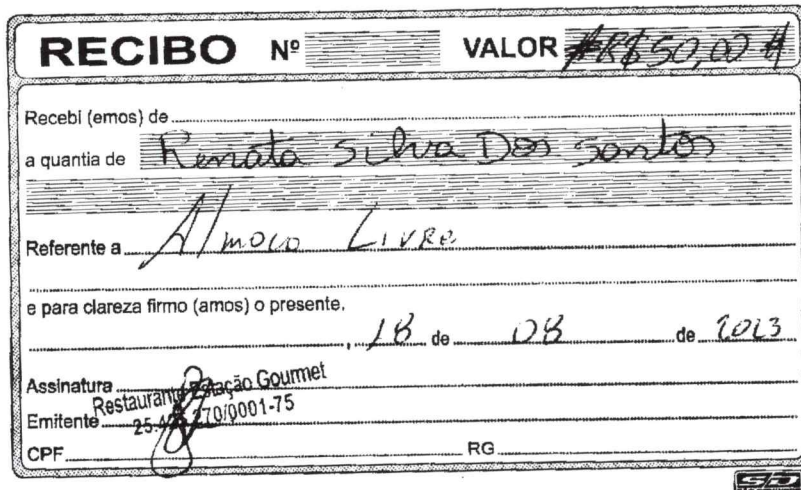 RECIBO Nº VALOR #R$50,00#
Recebi (emos) de
a quantia de Renata Silva Dos Santos
Referente a Almoço Livre
e para clareza firmo (amos) o presente.
, 18 de 08 de 2023
Assinatura
Restaurante Estação Gourmet
Emitente 270/0001-75
CPF RG